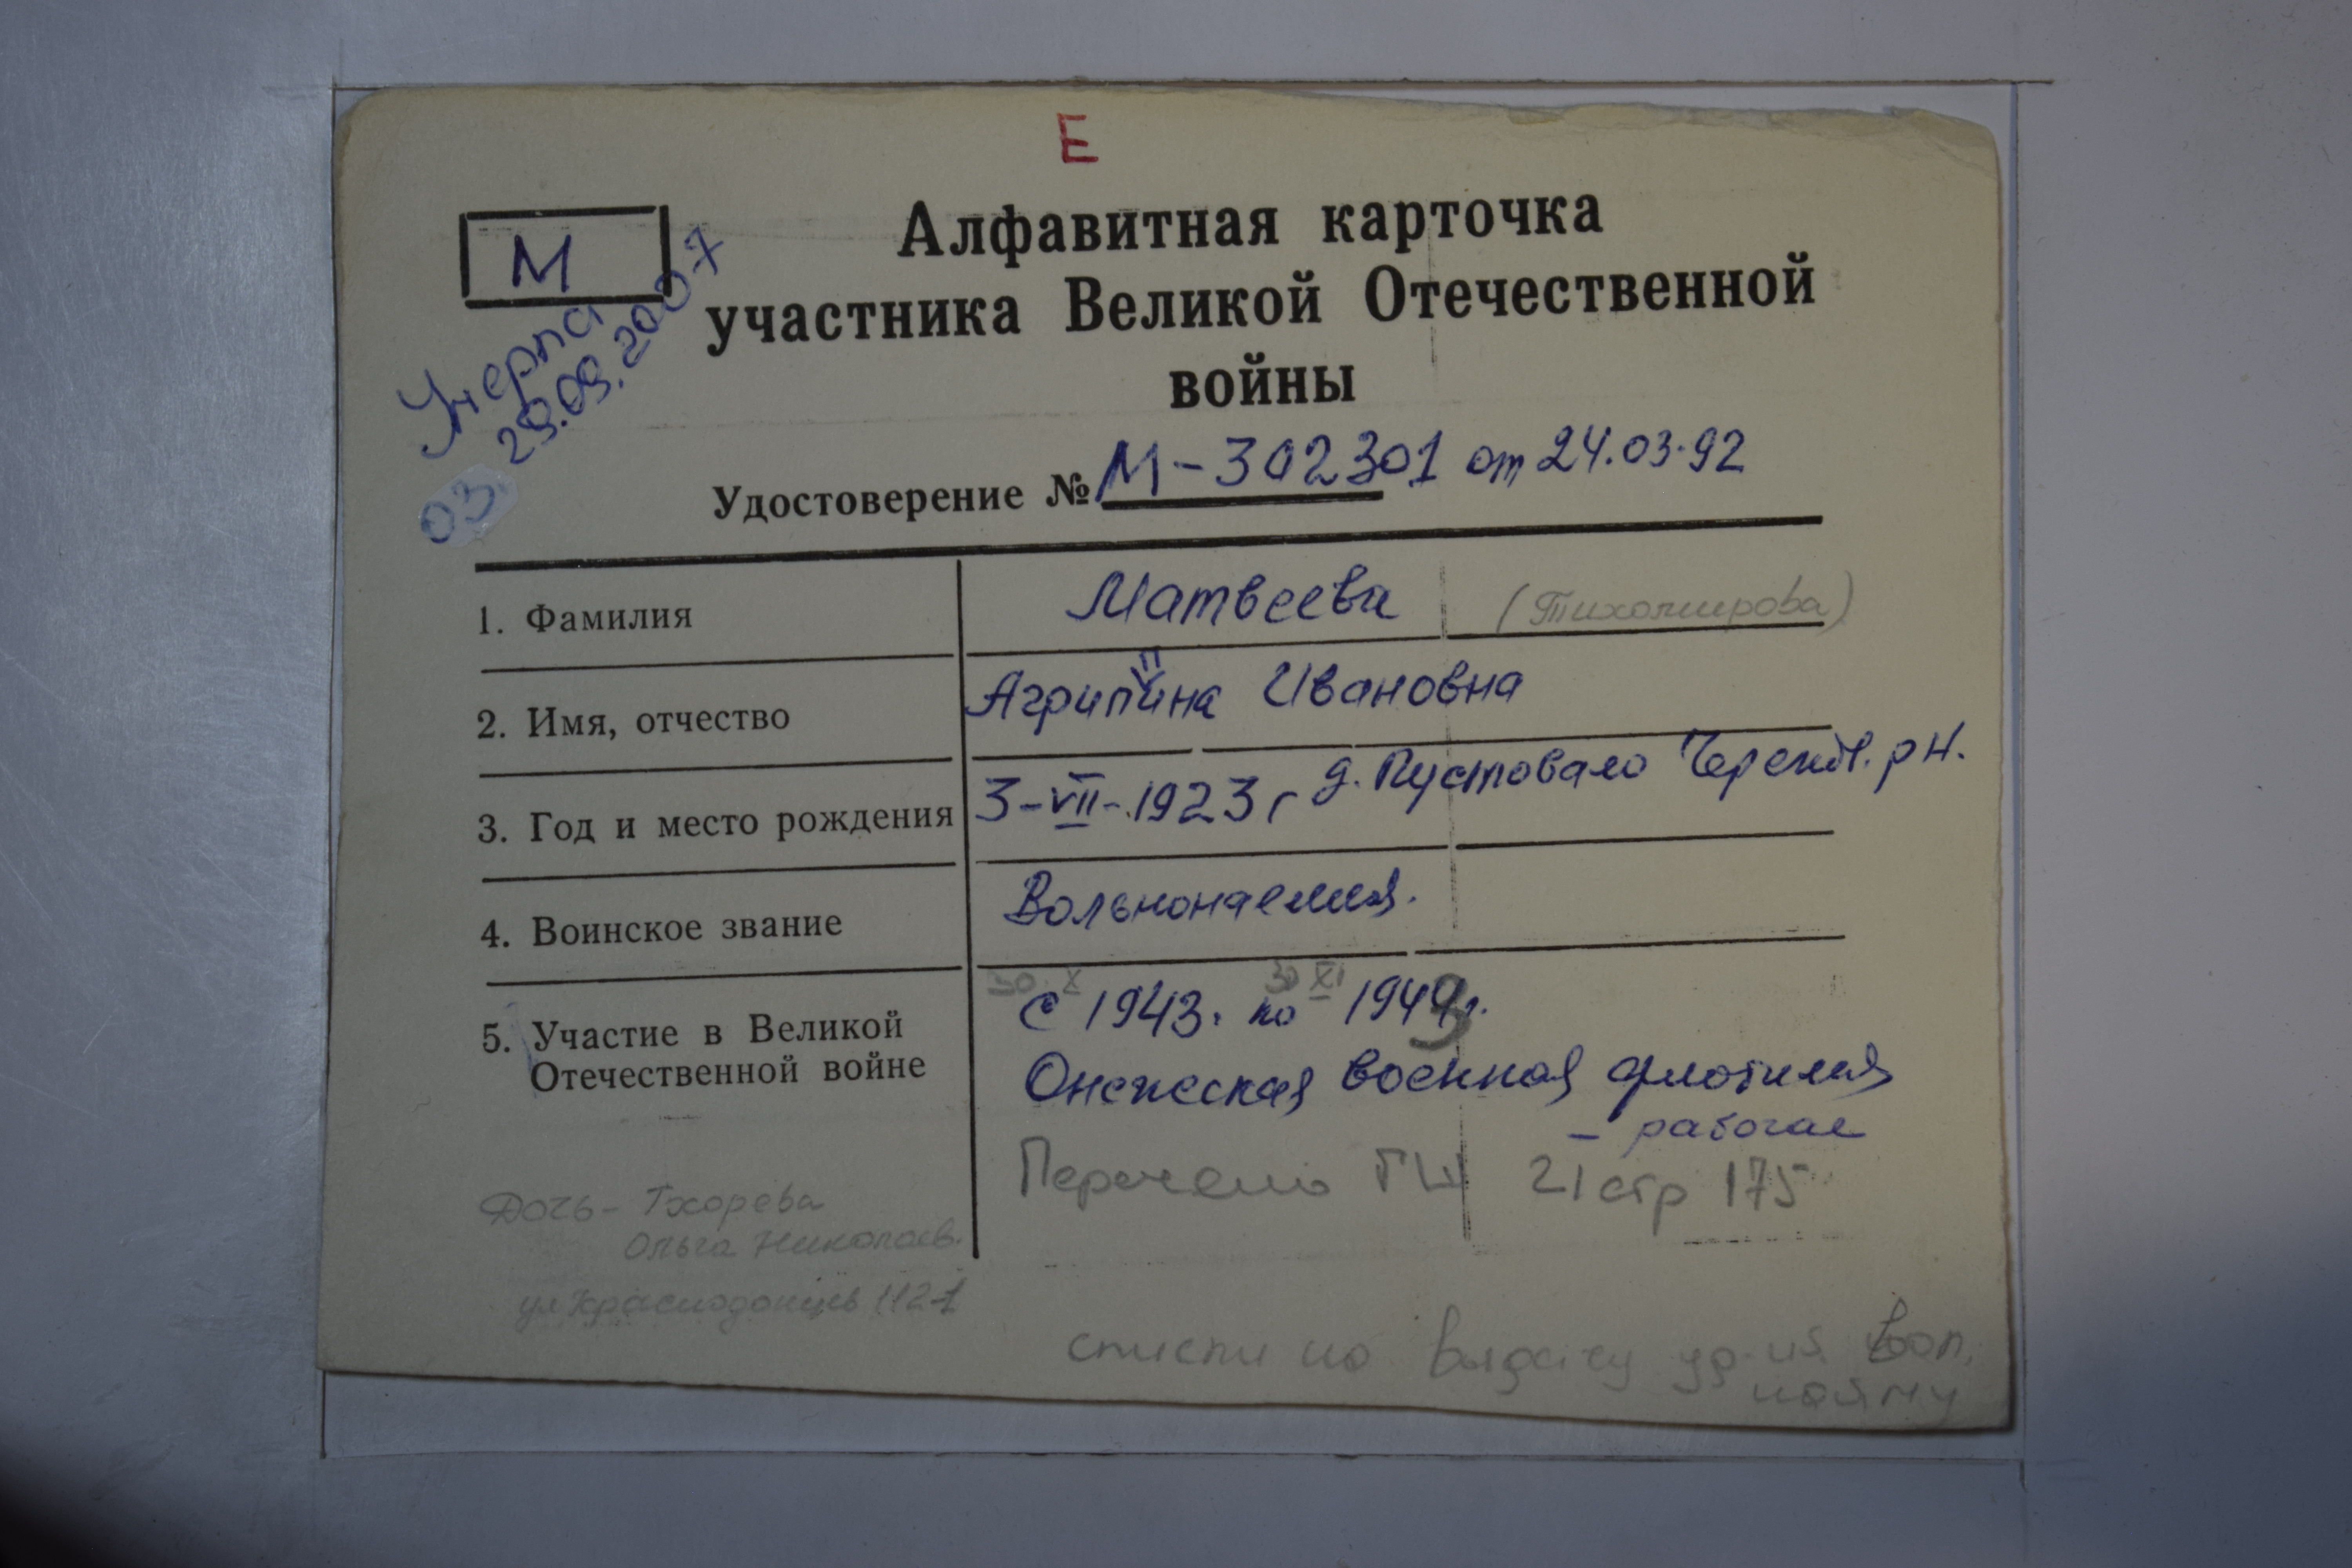 Е
М
Алфавитная карточка
участника Великой Отечественной
войны
Умерла
29.09.2007
03.
Удостоверение № М-302301 от 24.03.92
1. Фамилия Матвеева (Тихомирова)
2. Имя, отчество Агриппина Ивановна
3. Год и место рождения 3-VII-1923г д. Пустовало р-н.
4. Воинское звание Вольнонаемная.
30.X 30 XI
5. Участие в Великой
Отечественной войне
с 1943г. по 1943г.
Онежская военная флотилия
- рабочая
Перечень ГШ 21 стр 175
Дочь - Тхорева
Ольга Николаев.
ул Краснодонцев 112-1
списки на выдачу уд-ия вол.
найму